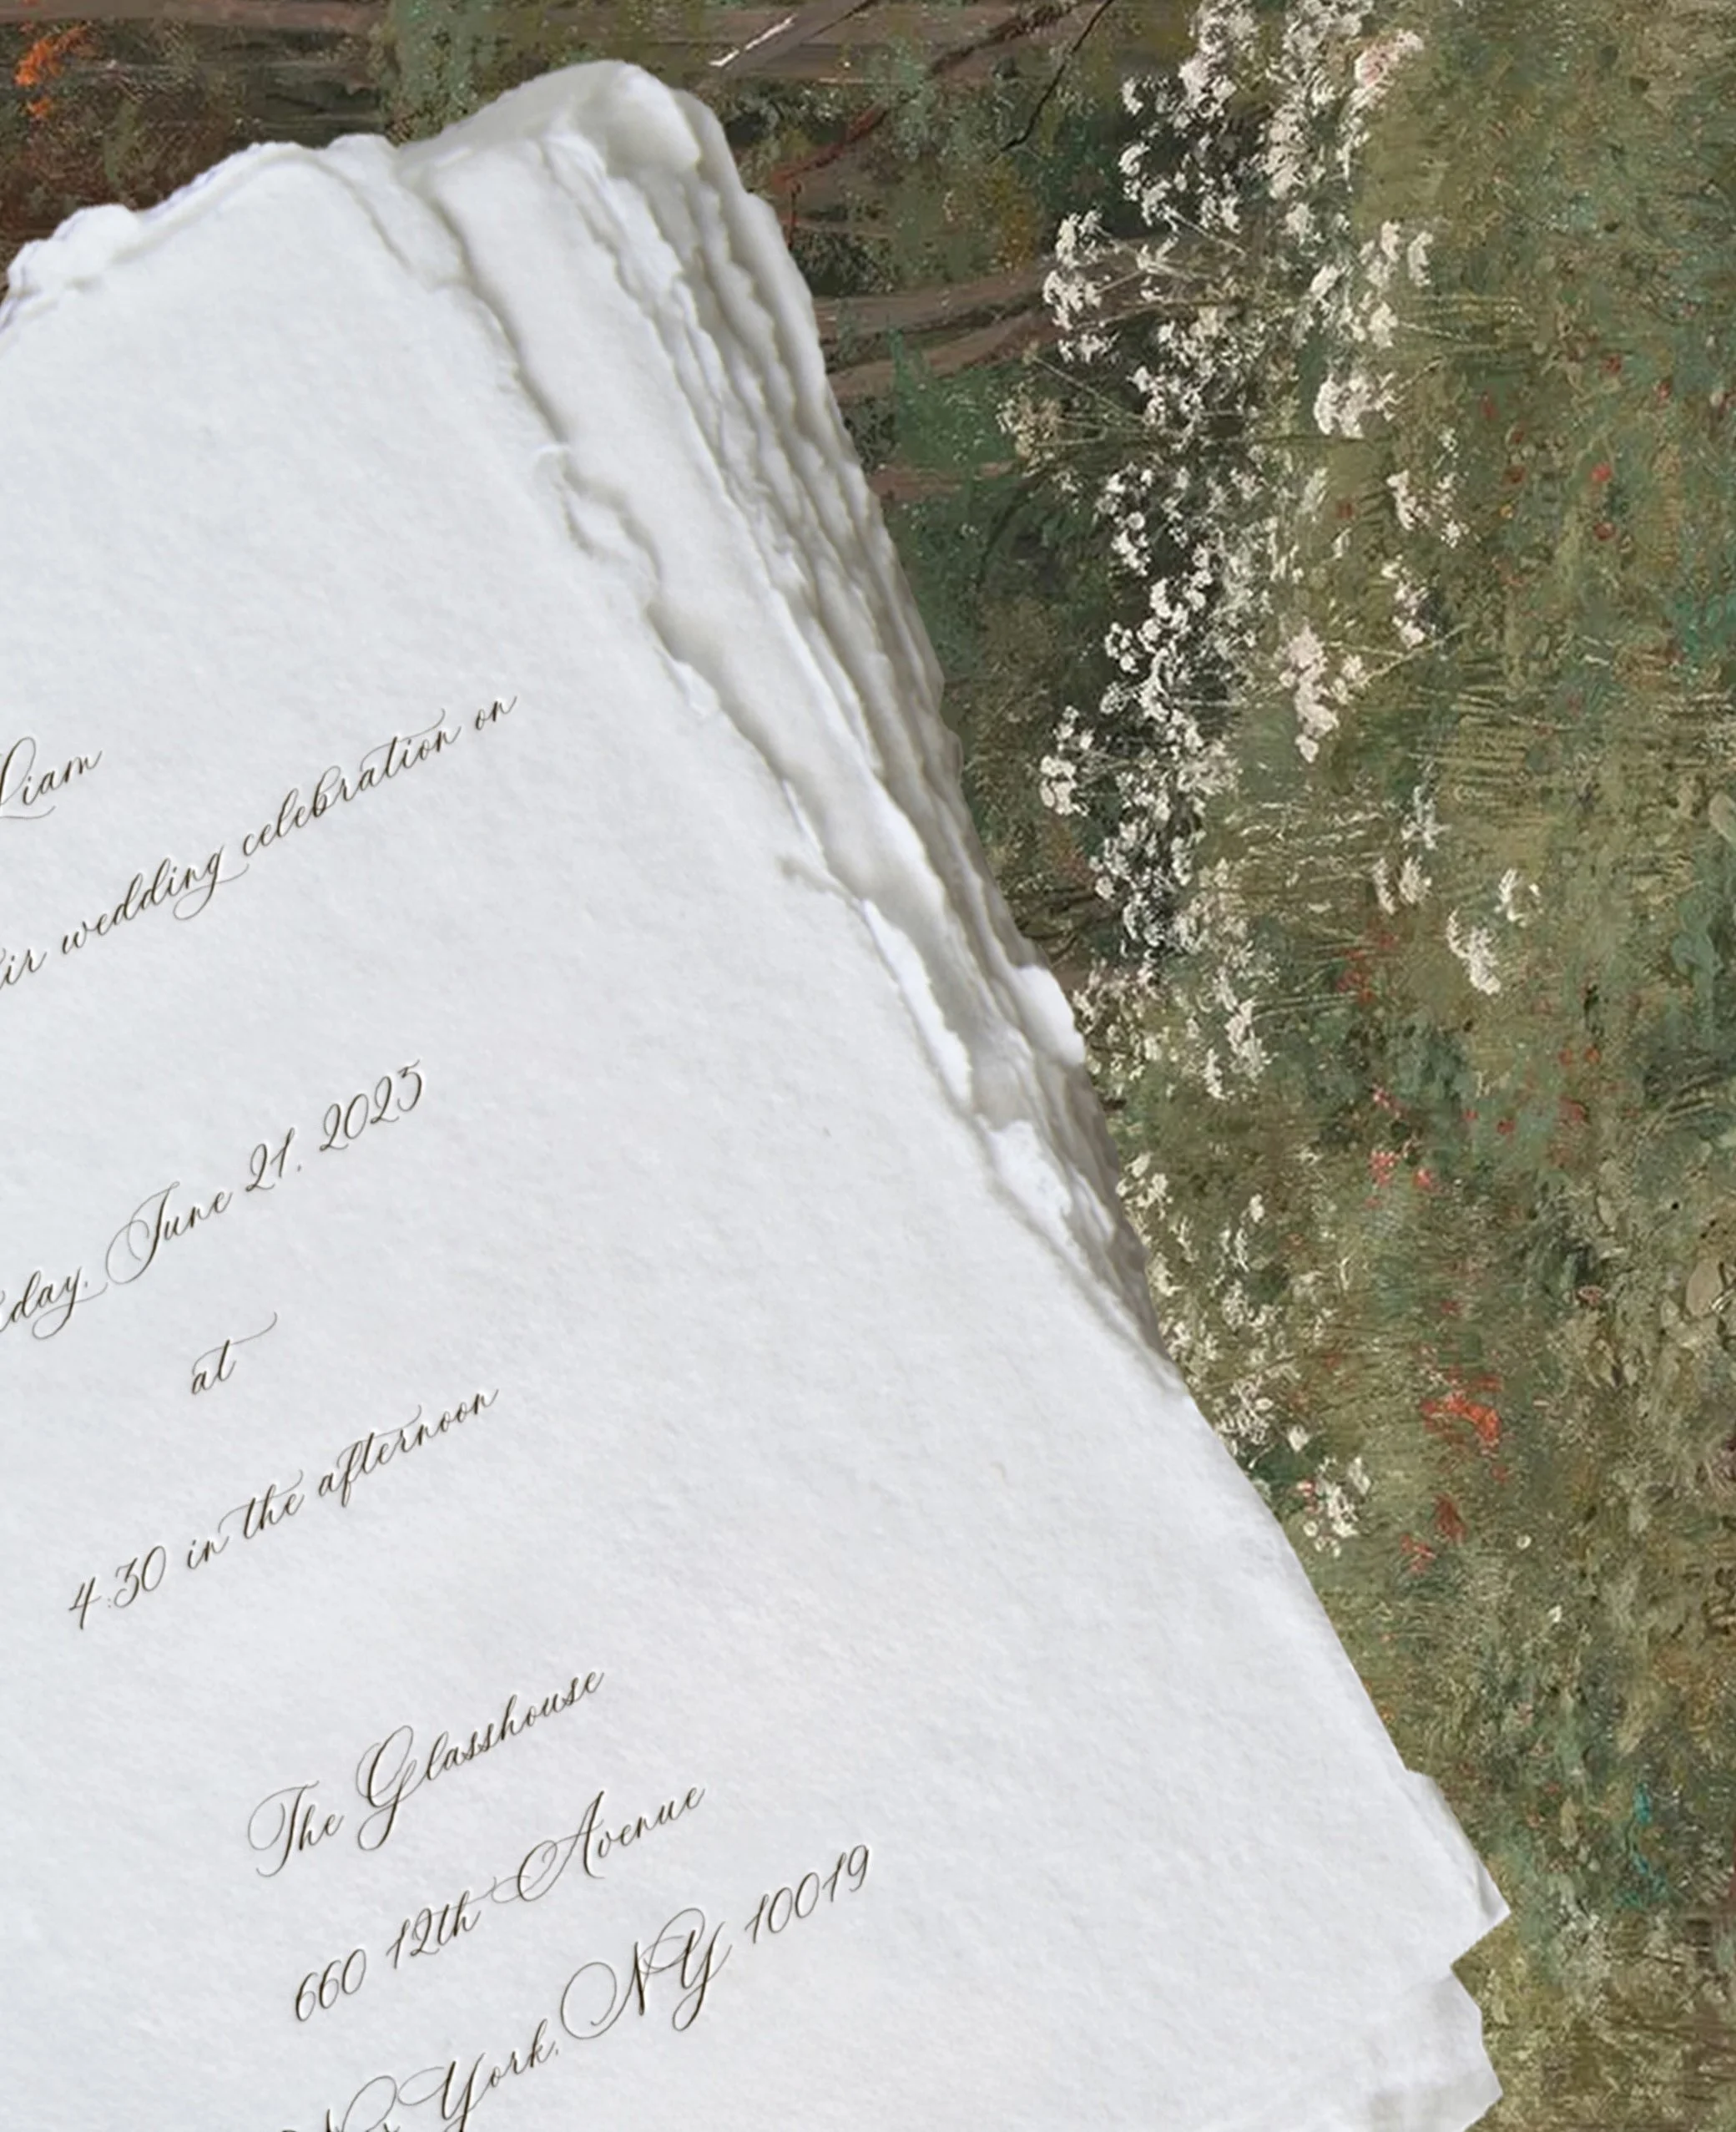 Liam
ir wedding celebration on
day, June 21, 2025
at
4:30 in the afternoon
The Glasshouse
660 12th Avenue
New York, NY 10019